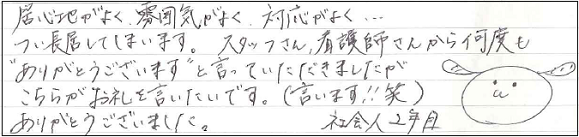 居心地がよく、雰囲気がよく、対応がよく…
つい長居してしまいます。スタッフさん、看護師さんから何度も
"ありがとうございます"と言っていただきましたが
こちらがお礼を言いたいです。(言います!!笑)
ありがとうございました。 社会人2年目